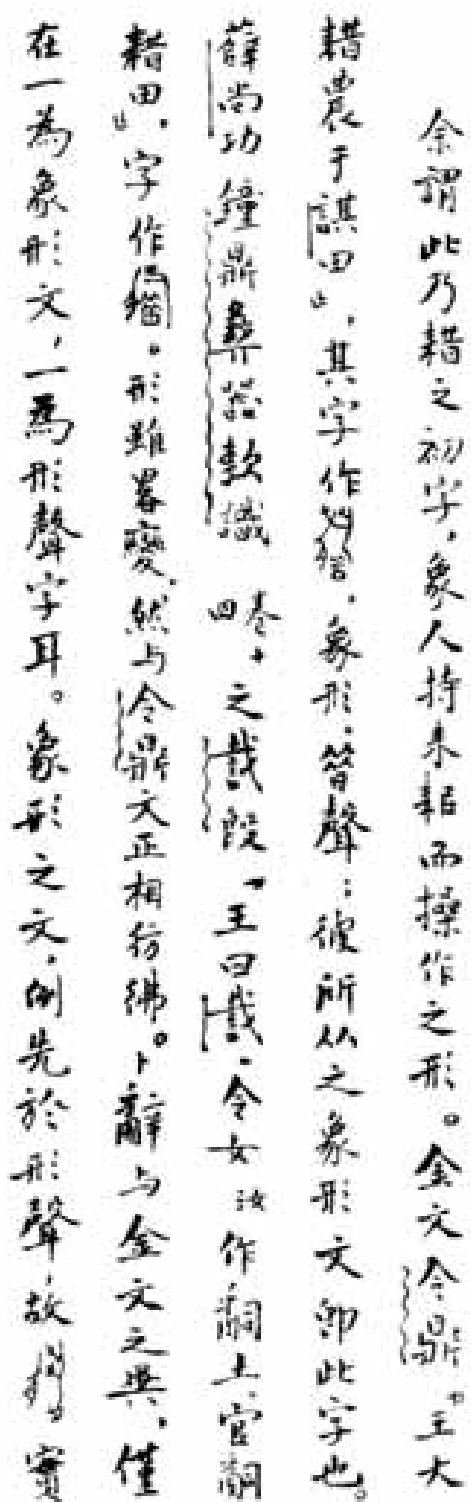 余謂此乃耤之初字，象人持耒耜而操作之形。金文令鼎「王大
耤農于諆田」，其字作，象形，昔聲：彼所从之象形文即此字也。
薛尚功鐘鼎彝器款識卷十四之𢦏𣪘「王曰𢦏，令女汝作𤔲土，官𤔲
耤田」，字作。形雖畧變，然与令鼎文正相彷彿。卜辭与金文之異，僅
在一為象形文，一為形聲字耳。象形之文，例先於形聲，故實